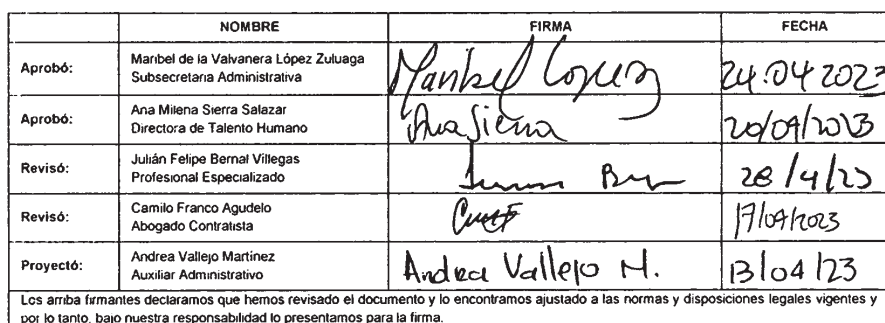 NOMBRE FIRMA FECHA
Aprobó: Maribel de la Valvanera López Zuluaga
Subsecretaria Administrativa
Maribel López 24.04 2023
Aprobó: Ana Milena Sierra Salazar
Directora de Talento Humano
Ana Sierra 20/04/2023
Revisó: Julián Felipe Bernal Villegas
Profesional Especializado
28/4/23
Revisó: Camilo Franco Agudelo
Abogado Contratista
17/04/2023
Proyectó: Andrea Vallejo Martínez
Auxiliar Administrativo
Andrea Vallejo M. 13/04/23
Los arriba firmantes declaramos que hemos revisado el documento y lo encontramos ajustado a las normas y disposiciones legales vigentes y
por lo tanto, bajo nuestra responsabilidad lo presentamos para la firma.